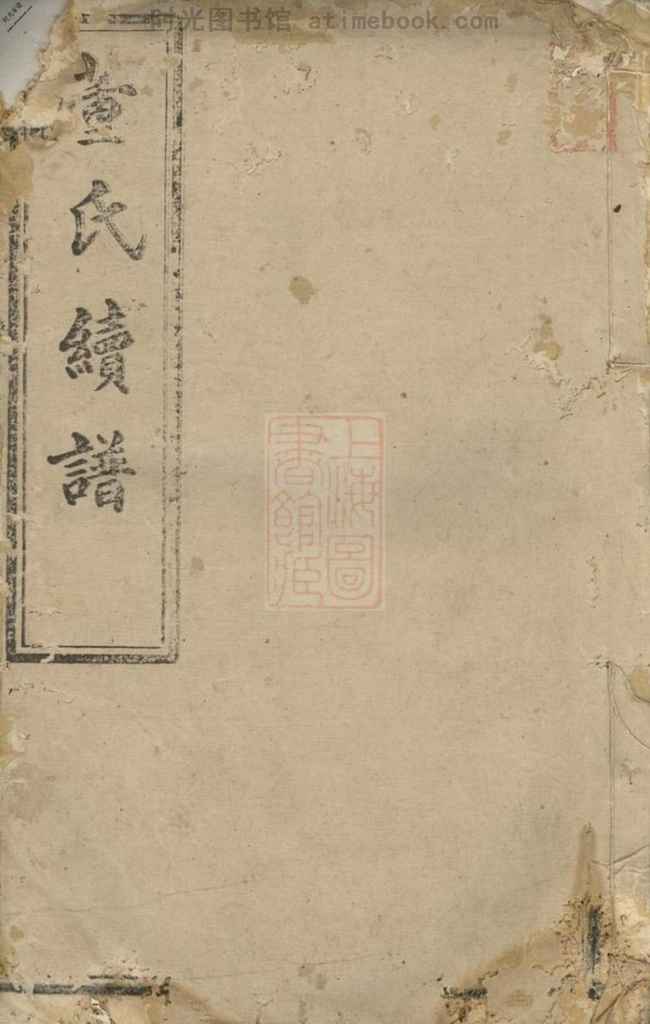 时光图书馆 atimebook.com
董氏續譜
上海圖
書館藏